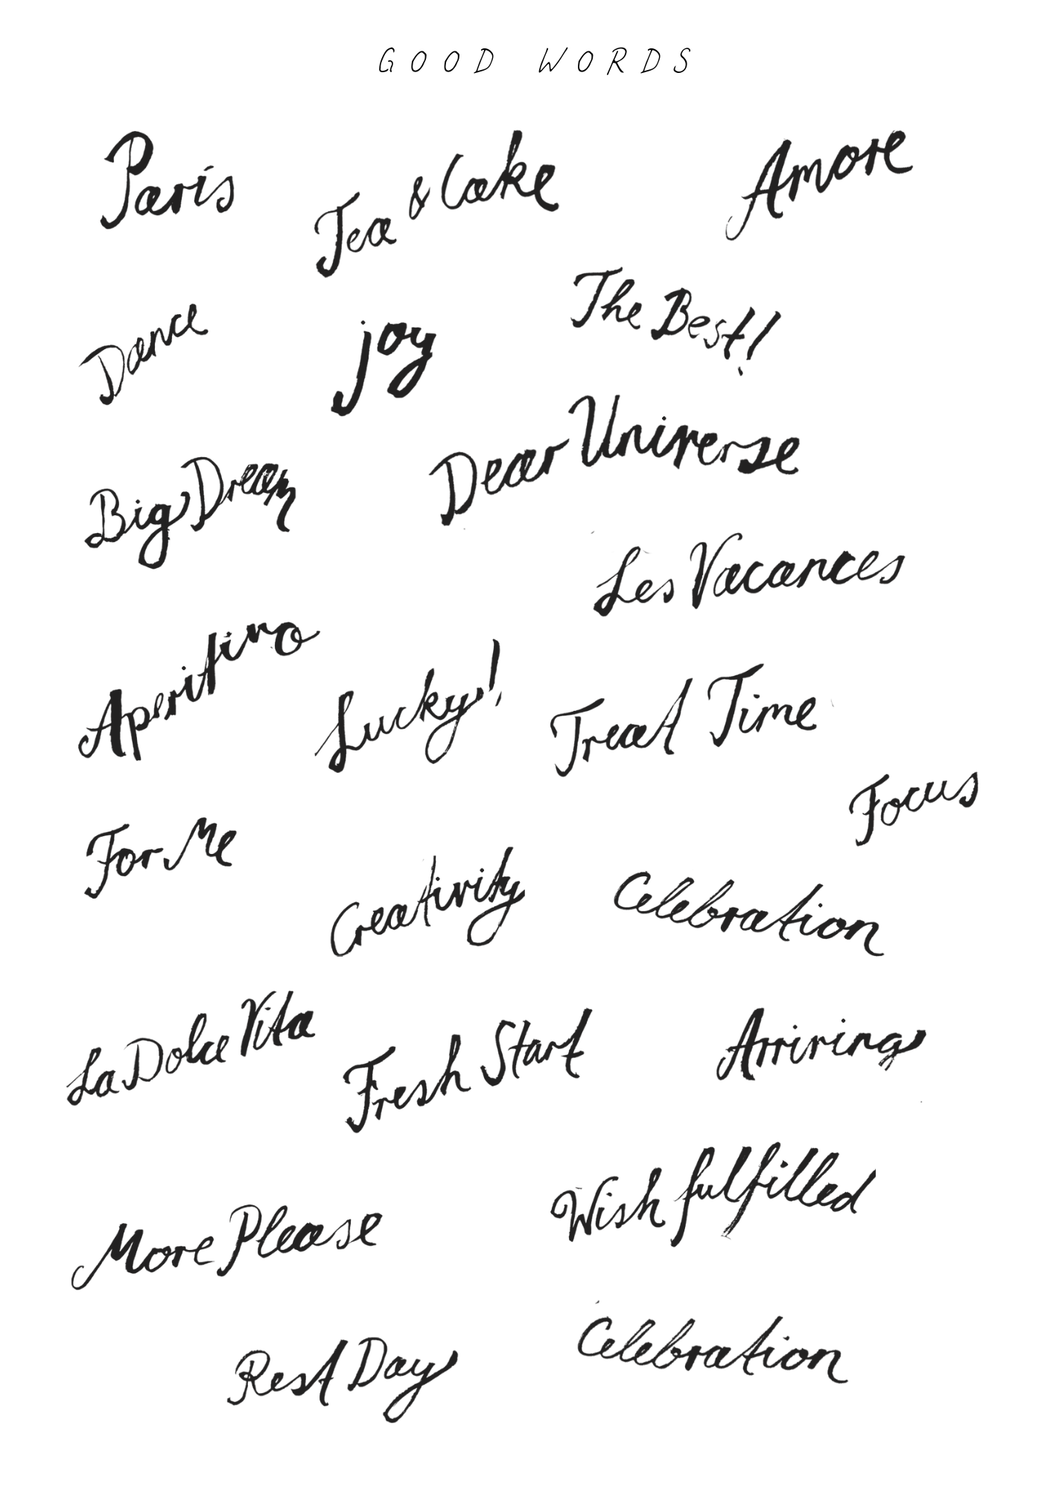 GOOD WORDS
Paris
Tea & Cake
Amore
Dance
joy
The Best!
Big Dream
Dear Universe
Les Vacances
Aperitivo
Lucky!
Treat Time
Focus
For Me
Creativity
Celebration
La Dolce Vita
Fresh Start
Arriving
More Please
Wish fulfilled
Rest Day
Celebration